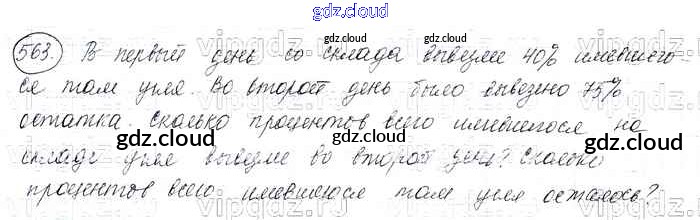 gdz.cloud
563. В первый день со склада вывезли 40% имевшего-
ся там угля. Во второй день было вывезено 75%
остатка. Сколько процентов всего имевшегося на
gdz.cloud gdz.cloud
складе угля вывезли во второй день? Сколько
процентов всего имевшегося там угля осталось?
gdz.cloud